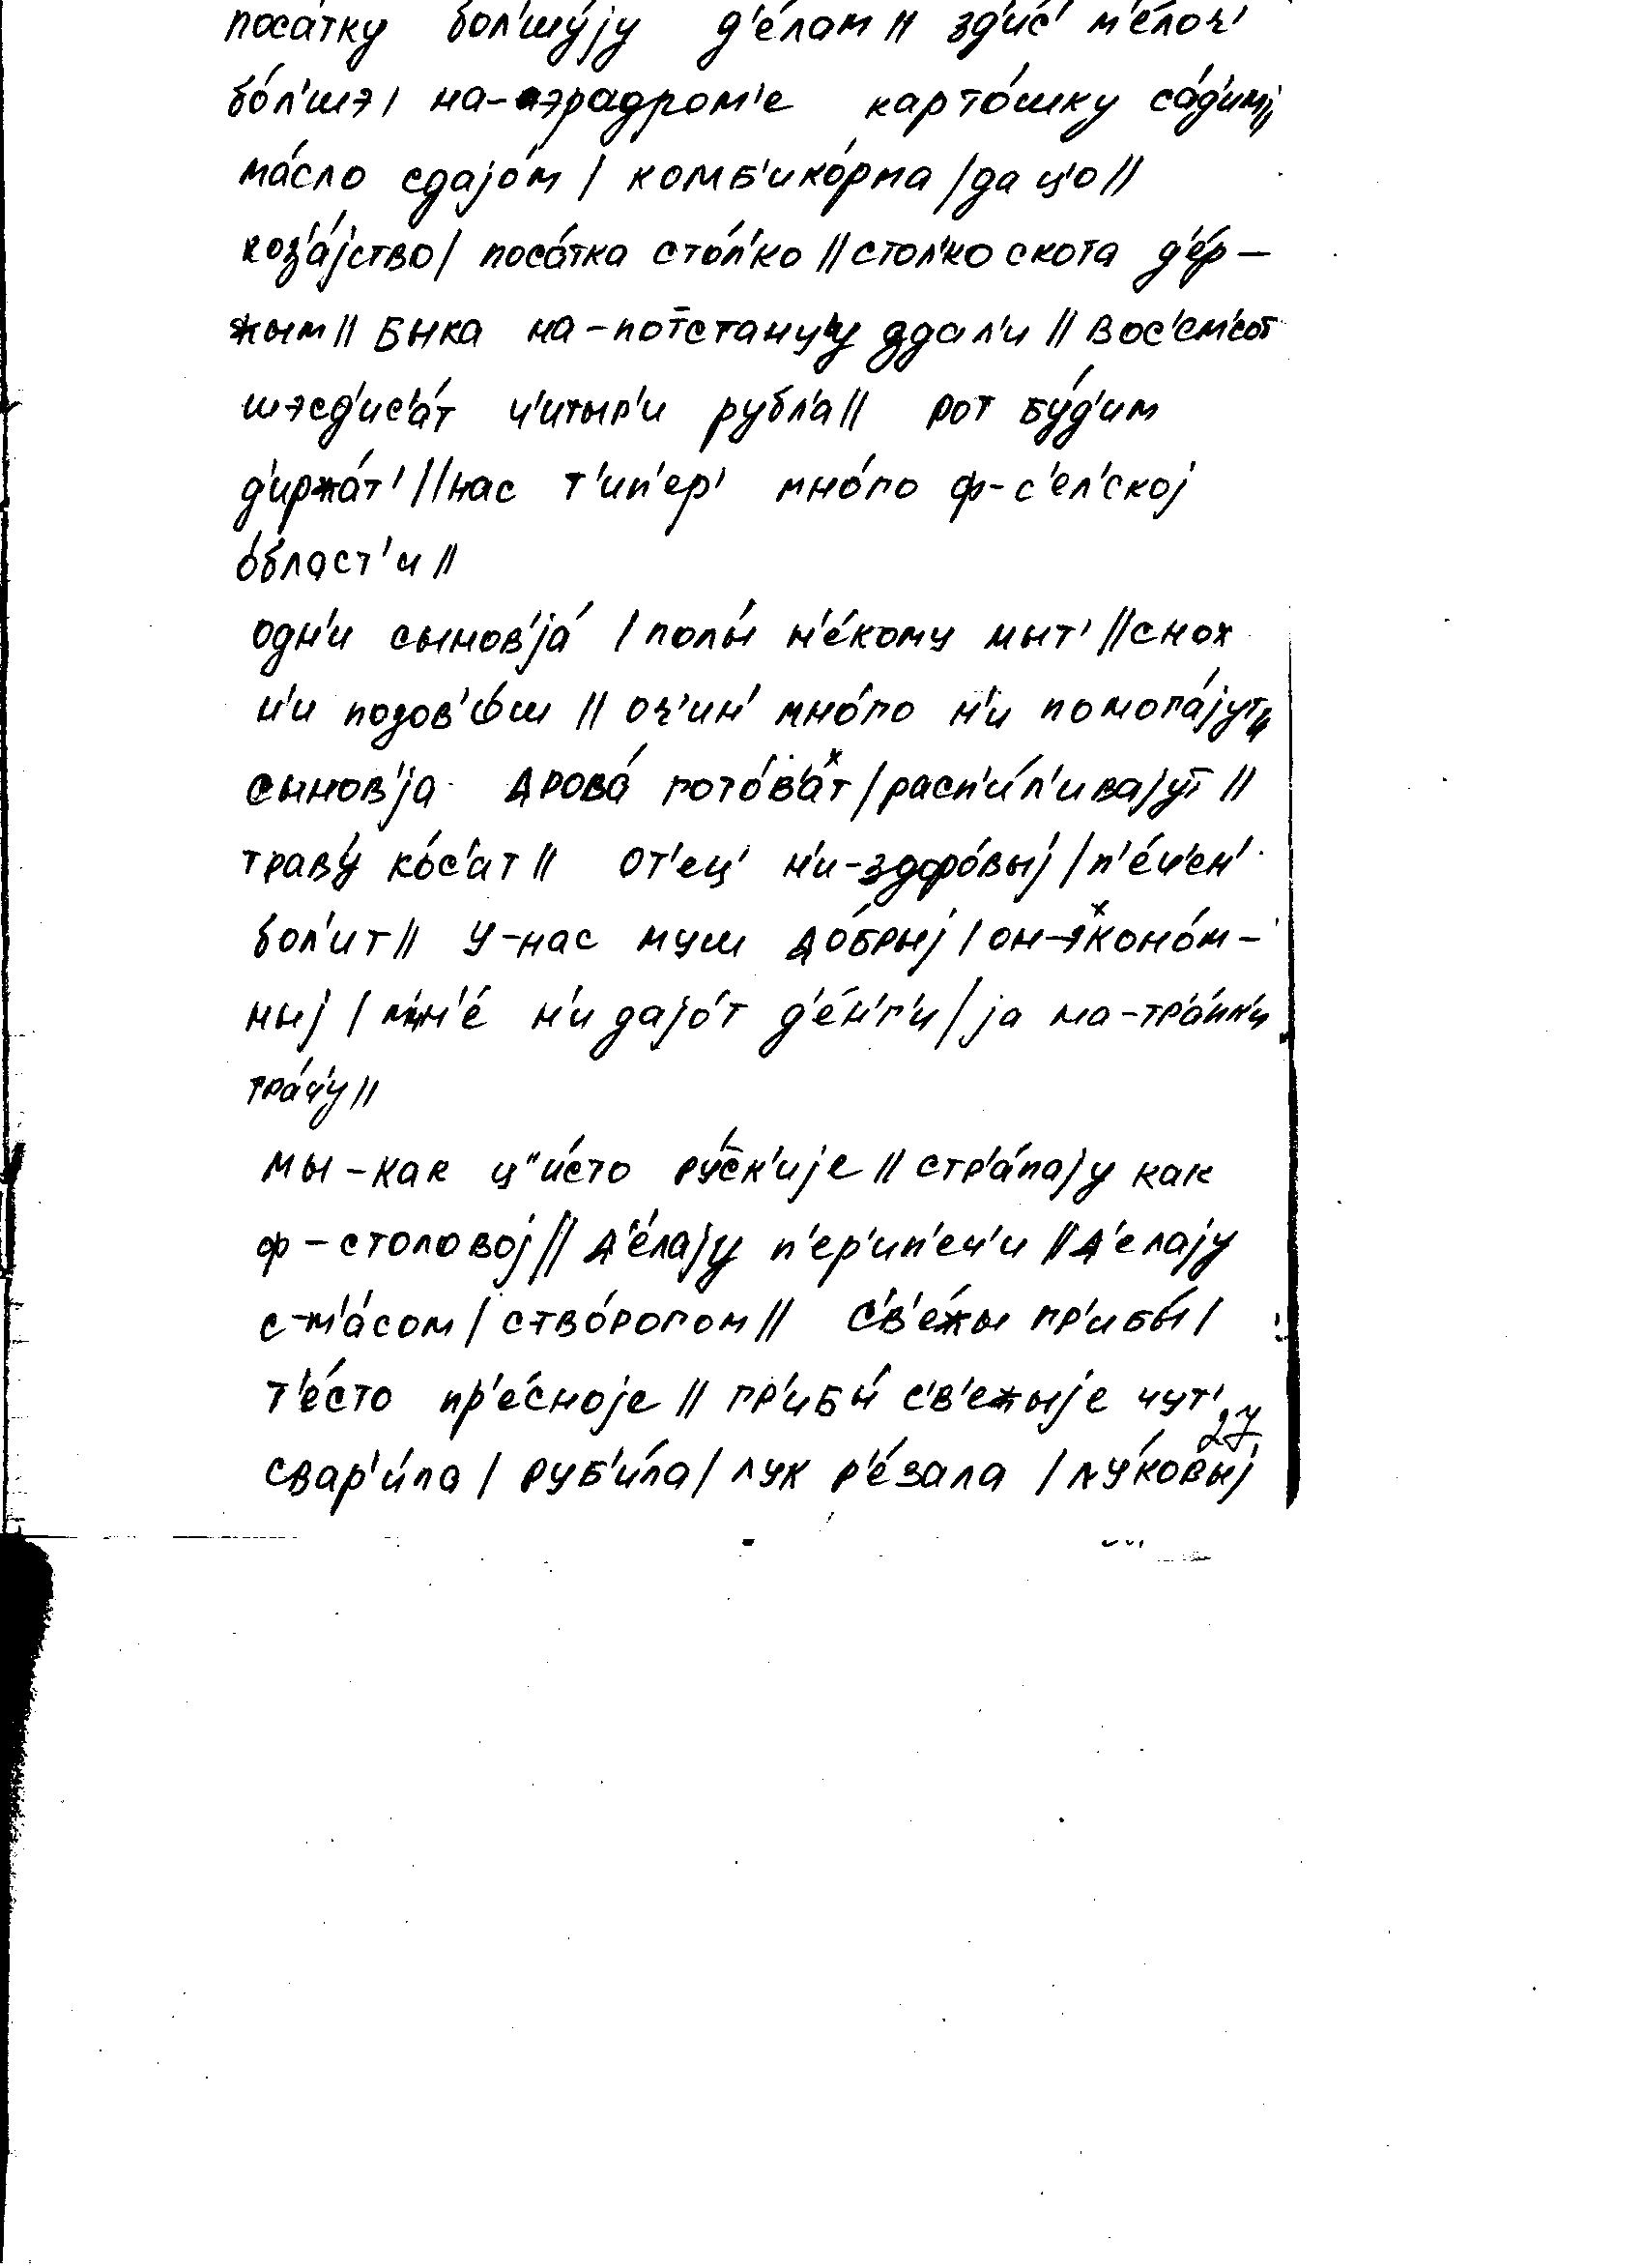 поса́тку бол'шу́jу д'е́лам // зд'ис' м'е́лоч'
бо́л'шэ / на-аэрадром'е карто́шку са́д'им //
ма́сло сдаjо́м / комб'ико́рма / да ц'о //
хоз'а́jство / поса́тка сто́л'ко // стол'ко скота д'е́р-
жым // быка на-потстанцу здал'и // вос'ем'сот
шэсд'ис'а́т ч'итыр'и рубл'а // рот бу́д'им
д'иржа́т' // нас т'ип'ер' мно́го ф-с'ел'скоj
о́бласт'и //
одн'и сынов'jа́ / полы́ н'е́кому мыт' // снох
н'и позов'о́ш // оч'ин' мно́го н'и помога́jут //
сынов'jа дрова́ гото́в'ат / расп'и́л'иваjут //
траву́ ко́с'ат // от'ец' н'и-здоро́выj / п'е́ч'ен'
бол'ит // у-нас муш до́брыj / он-эконо́м-
ныj / мн'е́ н'и даjо́т д'е́н'г'и / jа на-тра́пк'и
тра́ч'у //
мы-как ц"и́сто ру́ск'иjе // стр'а́паjу как
ф-столовоj // д'е́лаjу п'ер'ип'еч'и // д'елаjу
с-м'а́сом / ство́рогом // с'в'е́жы гр'ибы́ /
т'е́сто пр'е́сноjе // гр'ибы́ с'в'ежыjе чут'
27
свар'и́ла / руб'и́ла / лук р'е́зала / лу́ковыj